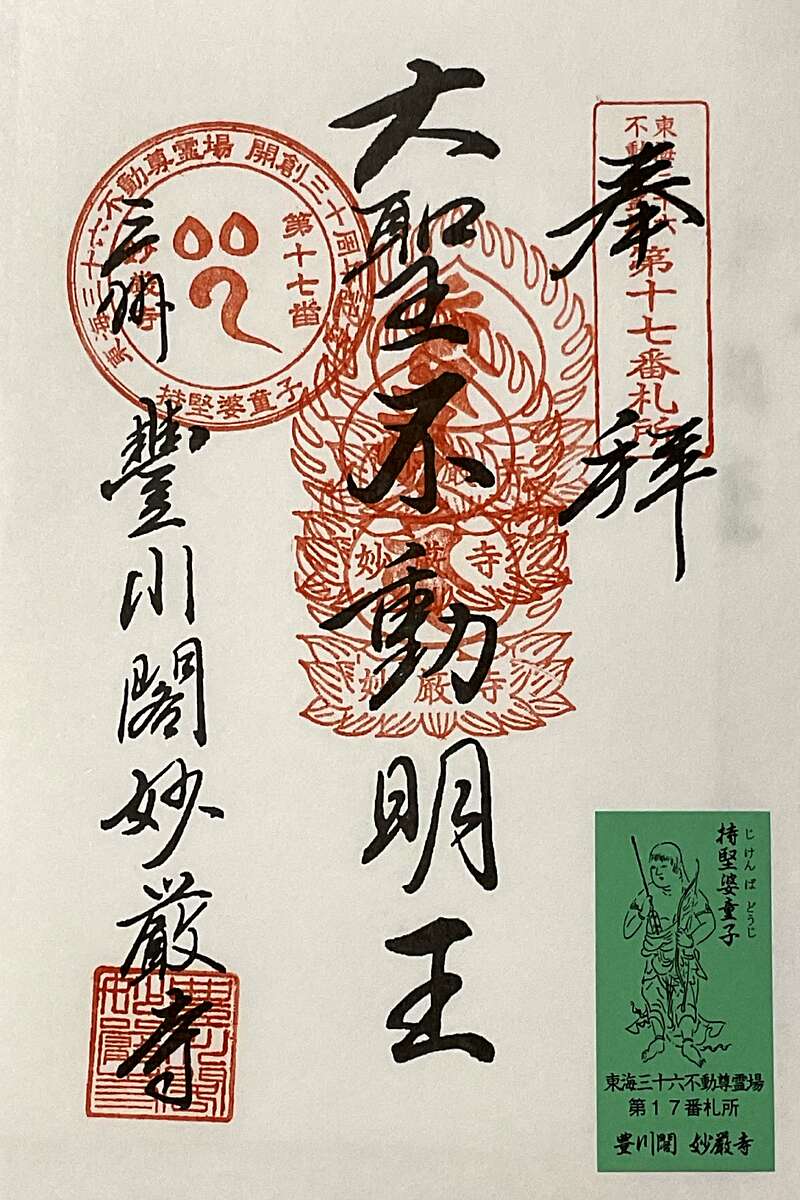 奉拝
東海三十六
不動尊霊場
第十七番札所
大聖不動明王
妙厳寺
妙厳寺
東海三十六不動尊霊場 開創三十周年記念
第十七番
妙厳寺
持堅婆童子
三州
豊川閣妙厳寺
持堅婆童子
じけんばどうじ
東海三十六不動尊霊場
第17番札所
豊川閣 妙厳寺